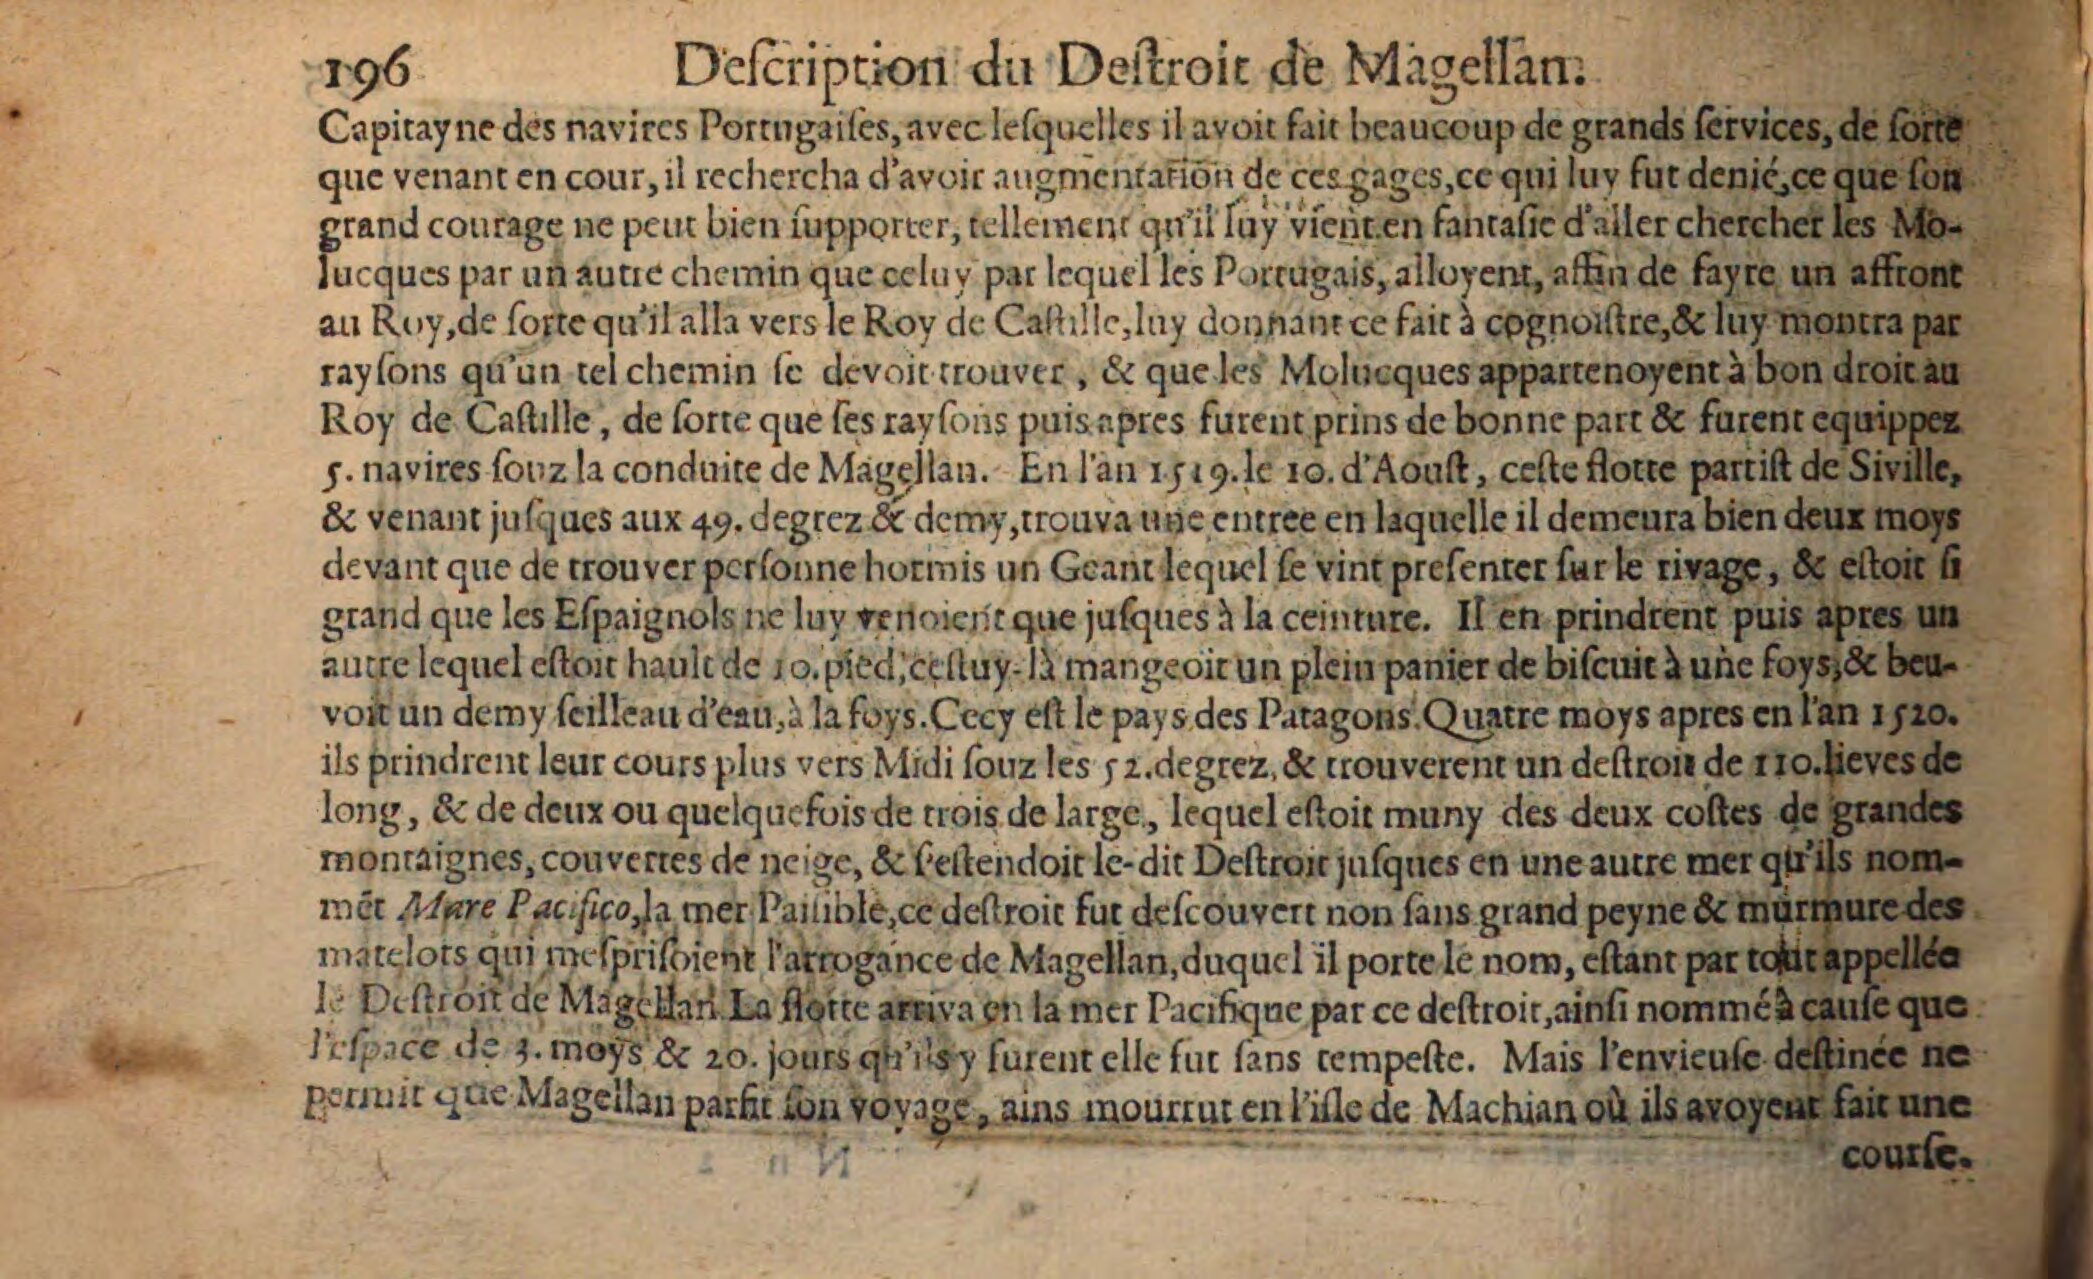 196 Deſcription du Deſtroit de Magellan.
Capitayne des navires Portugaiſes, avec leſquelles il avoit fait beaucoup de grands ſervices, de ſorte
que venant en cour, il rechercha d'avoir augmentation de ces gages, ce qui luy fut denié, ce que ſon
grand courage ne peut bien ſupporter, tellement qu'il luy vient en fantaſie d'aller chercher les Mo-
lucques par un autre chemin que celuy par lequel les Portugais, alloyent, affin de fayre un affront
au Roy, de ſorte qu'il alla vers le Roy de Caſtille, luy donnant ce fait à cognoiſtre, & luy montra par
rayſons qu'un tel chemin ſe devoit trouver, & que les Molucques appartenoyent à bon droit au
Roy de Caſtille, de ſorte que ſes rayſons puis apres furent prins de bonne part & furent equippez
5. navires ſouz la conduite de Magellan. En l'an 1519. le 10. d'Aouſt, ceſte flotte partiſt de Siville,
& venant juſques aux 49. degrez & demy, trouva une entree en laquelle il demeura bien deux moys
devant que de trouver perſonne hormis un Geant lequel ſe vint preſenter ſur le rivage, & eſtoit ſi
grand que les Eſpaignols ne luy venoient que juſques à la ceinture. Il en prindrent puis apres un
autre lequel eſtoit hault de 10. pied, ceſtuy-là mangeoit un plein panier de biſcuit à une foys, & beu-
voit un demy ſeilleau d'eau, à la foys. Cecy eſt le pays des Patagons. Quatre moys apres en l'an 1520.
ils prindrent leur cours plus vers Midi ſouz les 52. degrez, & trouverent un deſtroit de 110. lieves de
long, & de deux ou quelquefois de trois de large, lequel eſtoit muny des deux coſtes de grandes
montaignes, couvertes de neige, & s'eſtendoit le-dit Deſtroit juſques en une autre mer qu'ils nom-
mẽt Mare Pacifico, la mer Paiſible, ce deſtroit fut deſcouvert non ſans grand peyne & murmure des
matelots qui meſpriſoient l'arrogance de Magellan, duquel il porte le nom, eſtant par tout appellée
le Deſtroit de Magellan. La flotte arriva en la mer Pacifique par ce deſtroit, ainſi nommé à cauſe que
l'eſpace de 3. moys & 20. jours qu'ils y furent elle fut ſans tempeſte. Mais l'envieuſe deſtinée ne
permit que Magellan parfit ſon voyage, ains mourrut en l'iſle de Machian où ils avoyent fait une
courſe.